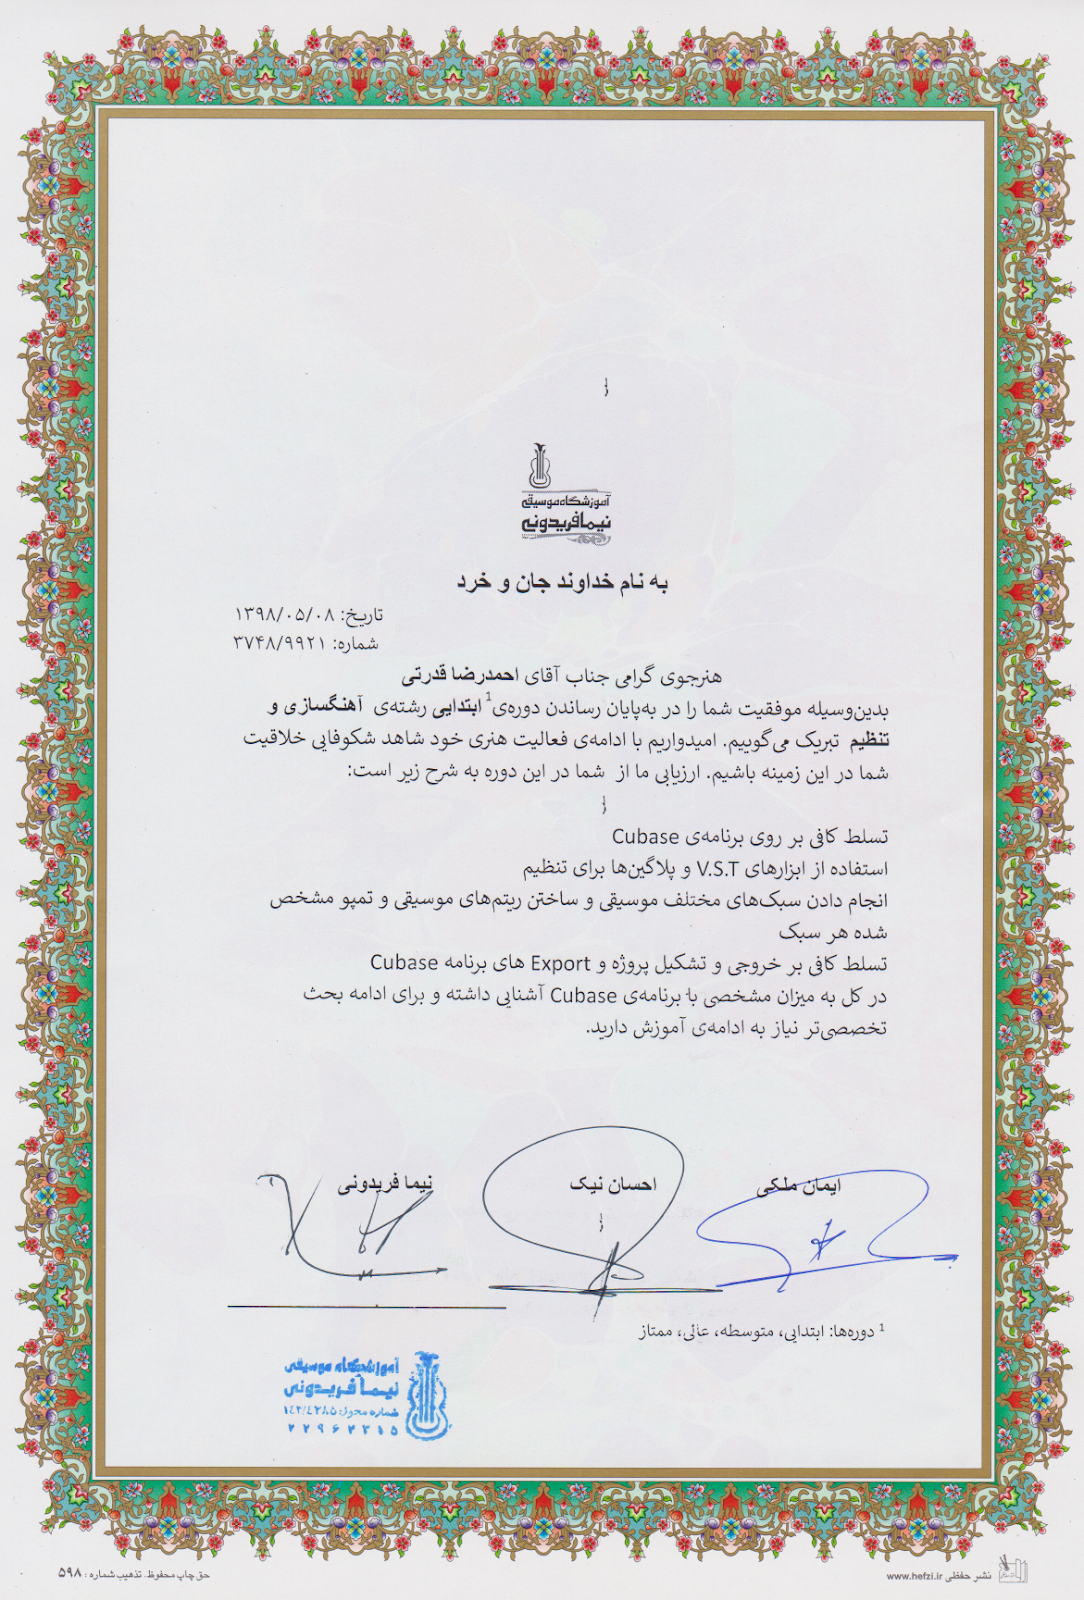 آموزشگاه موسیقی
نیما فریدونی
به نام خداوند جان و خرد
تاریخ: ۱۳۹۸/۰۵/۰۸
شماره: ۳۷۴۸/۹۹۲۱
هنرجوی گرامی جناب آقای احمدرضا قدرتی
بدین‌وسیله موفقیت شما را در به‌پایان رساندن دوره‌ی¹ ابتدایی رشته‌ی آهنگسازی و
تنظیم تبریک می‌گوییم. امیدواریم با ادامه‌ی فعالیت هنری خود شاهد شکوفایی خلاقیت
شما در این زمینه باشیم. ارزیابی ما از شما در این دوره به شرح زیر است:
تسلط کافی بر روی برنامه‌ی Cubase
استفاده از ابزارهای V.S.T و پلاگین‌ها برای تنظیم
انجام دادن سبک‌های مختلف موسیقی و ساختن ریتم‌های موسیقی و تمپو مشخص
شده هر سبک
تسلط کافی بر خروجی و تشکیل پروژه و Export های برنامه Cubase
در کل به میزان مشخصی با برنامه‌ی Cubase آشنایی داشته و برای ادامه بحث
تخصصی‌تر نیاز به ادامه‌ی آموزش دارید.
ایمان ملکی احسان نیک نیما فریدونی
¹ دوره‌ها: ابتدایی، متوسطه، عالی، ممتاز
آموزشگاه موسیقی
نیما فریدونی
شماره مجوز:
۲۲۹۶۲۳۱۵
نشر حفظی www.hefzi.ir
حق چاپ محفوظ. تذهیب شماره: ۵۹۸